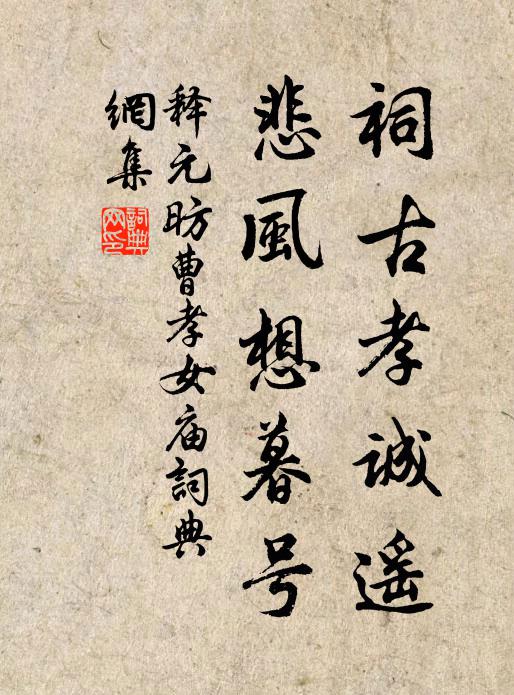 祠古孝诚遥
悲風想暮号
释元昉曹孝女庙詞典
網集
詞典網印